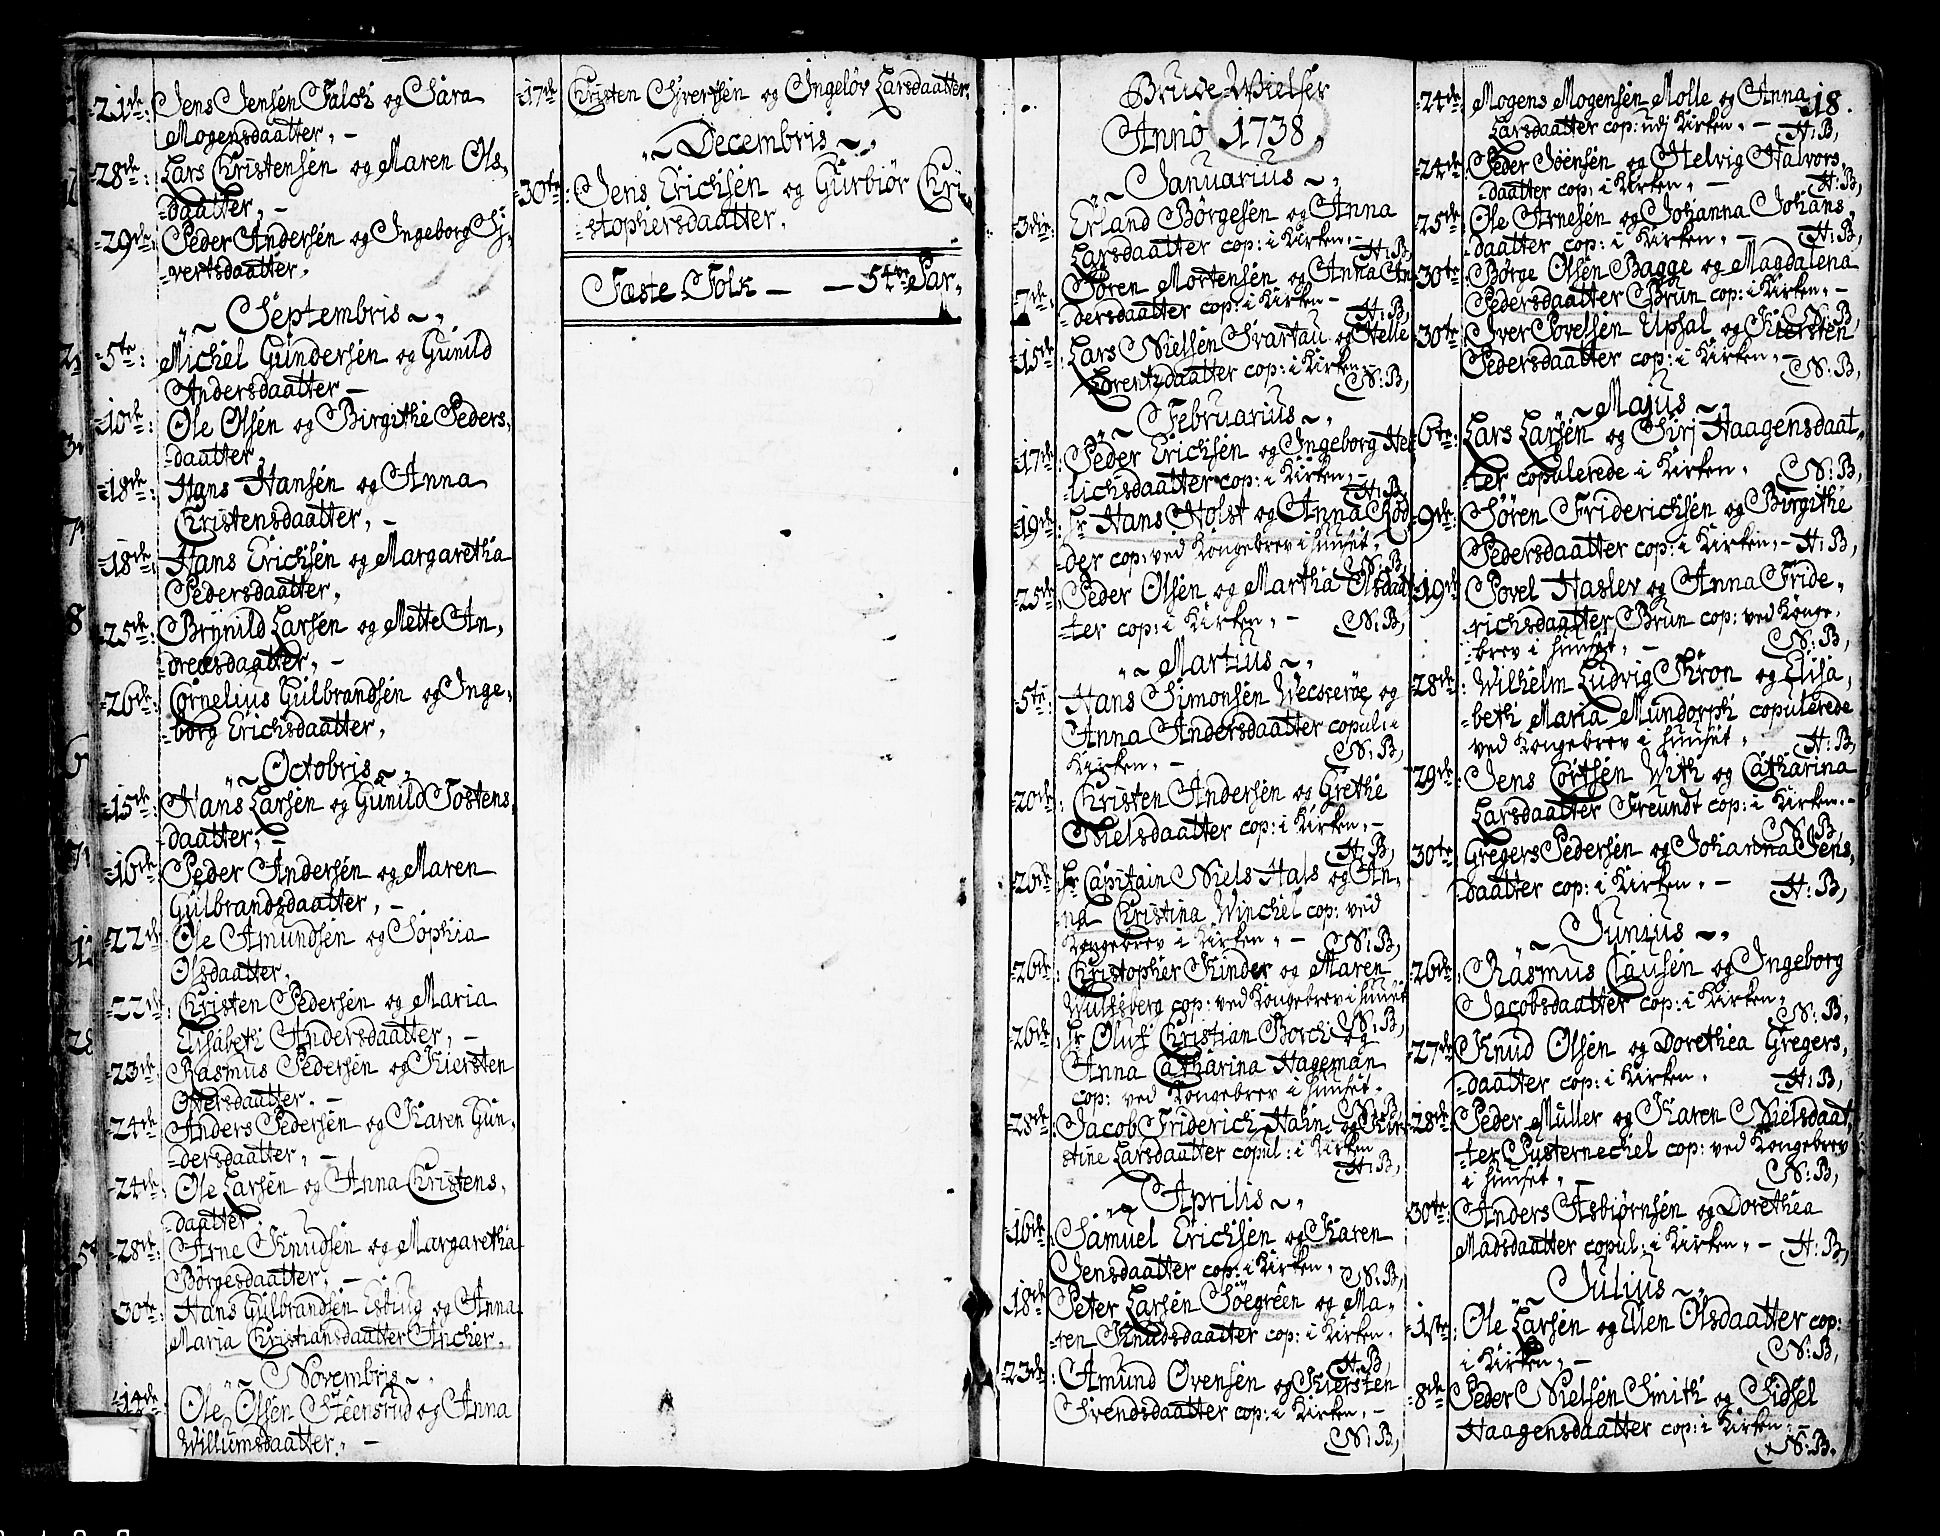 21de: Jens Jensen Falch og Sara
Mogensdaatter, -
28de: Lars Christensen og Maren Ols,
daatter, -
29de: Peder Andersen og Ingeborg Sj,
vertsdaatter,
Septembris
5te: Michel Gundersen og Gunild
Andersdaatter -
10de: Ole Olsen og Birgithe Peders,
daatter,
18de: Hans Hansen og Anna
Christensdaatter, -
18de: Hans Erichsen og Margaretha
Pedersdaatter,
25de: Brynild Larsen og Mette An,
dreæsdaatter, -
26de: Cornelius Gulbrandsen og Inge,
borg Erichsdaatter,
Octobris
15de: Hans Larsen og Gunild Tostens,
daatter, -
16de: Peder Andersen og Maren
Gulbrandsdaatter, -
22de: Ole Amundsen og Sophia
Olsdaatter,
22de: Christen Pedersen og Maria
Elisabeth Andersdaatter, -
23de: Rasmus Pedersen og Kiersten
Ottersdaatter, -
24de: Anders Pedersen og Karen Gun,
dersdaatter, -
24de: Ole Larsen og Anna Christens,
daatter
28de: Arne Knudsen og Margaretha
Børgesdaatter, -
30te: Hans Gulbrandsen Esbug og Anna
Maria Christiansdaatter Ancher,
Novembris
14de Ole Olsen Steensrud og Anna
Willumsdaatter, -
17de Christen Sjvertsen og Ingeløv Larsdaatter,
Decembris
30te: Jens Erichsen og Gurbiør Chri
stophersdaatter,
Fæste Folk - - 54re Par,
Brude Wielser
Anno 1738,
Januarius
3die: Erland Børgesen og Anna
Larsdaatter cop: i Kirken, - H:B,
7de: Søren Mortensen og Anna An
dersdaatter cop: i Kirken - H:B,
15de: Lars Nielsen Svartau og Helle
Lorentzdaatter cop: i Kirken, N:B,
Februarius
17de: Peder Erichsen og Ingeborg Hen
richsdaatter cop: i Kirken, - H:B,
19de: Hr Hans Holst og Anna Rød
der cop: ved Kongebrev i Huuset, N:B,
25de: Peder Olsen og Martha Olsdaat
ter cop: i Kirken, - N:B,
Martius
5te: Hans Simonsen Weckerøe og
Anna Andersdaatter copul: i
Kirken, - N:B,
20de: Christen Andersen og Grethe
Nielsdaatter cop: i Kirken, - H:B,
26de: Hr Capitain Niels Hals og An,
na Christina Winchel cop: ved
Kongebrev i Kirken, - N:B,
26de: Christopher Kinder og Maren
Wulfsberg cop: ved Kongebrev i Huuset
N:B,
26de: Hr Oluf Christian Borch og
Anna Catharina Hageman
cop: ved Kongebrev i Huuset,
N:B,
28de: Jacob Friderich Hahn og Kir
stine Larsdaatter copul: i Kirken
H:B,
Aprilis
16de: Samuel Erichsen og Karen
Jensdaatter cop: i Kirken, N:B,
18de: Peter Larsen Søegreen og Ma,
ren Knudsdaatter cop: i Kirken,
H:B,
23de: Amund Ovensen og Kiersten
Svendsdaatter cop: i Kirken, -
N:B,
18.
24de: Mogens Mogensen Molle og Anna
Larsdaatter cop: udj Kirken, - H:B,
24de: Peder Joensen og Helvig Halvors,
daatter cop: i Kirken, - H:B,
25de: Ole Arnesen og Johanna Johans,
daatter cop: i Kirken, - H:B,
30te: Børge Olsen Bagge og Magdalena
Pedersdaatter Brun cop: i Kirken, -
N:B,
30te: Iver Povelsen Upsal og Kiersten
Pedersdaatter cop: i Kirken, -
N:B,
Majus
6te: Lars Larsen og Sirj Haagensdaat,
ter copulerede i Kirken, N:B,
9de: Søren Friderichsen og Birgithe
Pedersdaatter cop: i Kirken, - H:B,
19de: Povel Hasler og Anna Fride,
richsdaatter Brun cop: ved Konge,
brev i Huuset, - N:B,
28de: Wilhelm Ludvig Thron og Elisa,
beth Maria Mundorph copulerede
ved Kongebrev i Huuset, H:B,
29de: Jens Cortsen With og Catharina
Larsdaatter Freundt cop: i Kirken, -
N:B,
30te: Gregers Pedersen og Johanna Jens,
daatter cop: i Kirken, - H:B,
Junius
26de: Rasmus Clausen og Ingeborg
Jacobsdaatter cop: i Kirken,
N:B,
27de: Knud Olsen og Dorethea Gregers,
daatter cop: i Kirken, H:B,
28de: Peder Müller og Karen Nielsdaat,
ter Pusternechel cop: ved Kongebrev
i Huuset, - N:B,
30te: Anders Asbiørnsen og Dorethea
Madsdaatter copul: i Kirken, - H:B,
Julius
1ste: Ole Larsen og Ellen Olsdaatter cop:
i Kirken, - N:B,
8de: Peder Nielsen Smith og Sidsel
Haagensdaatter cop: i Kirken, -
N:B,